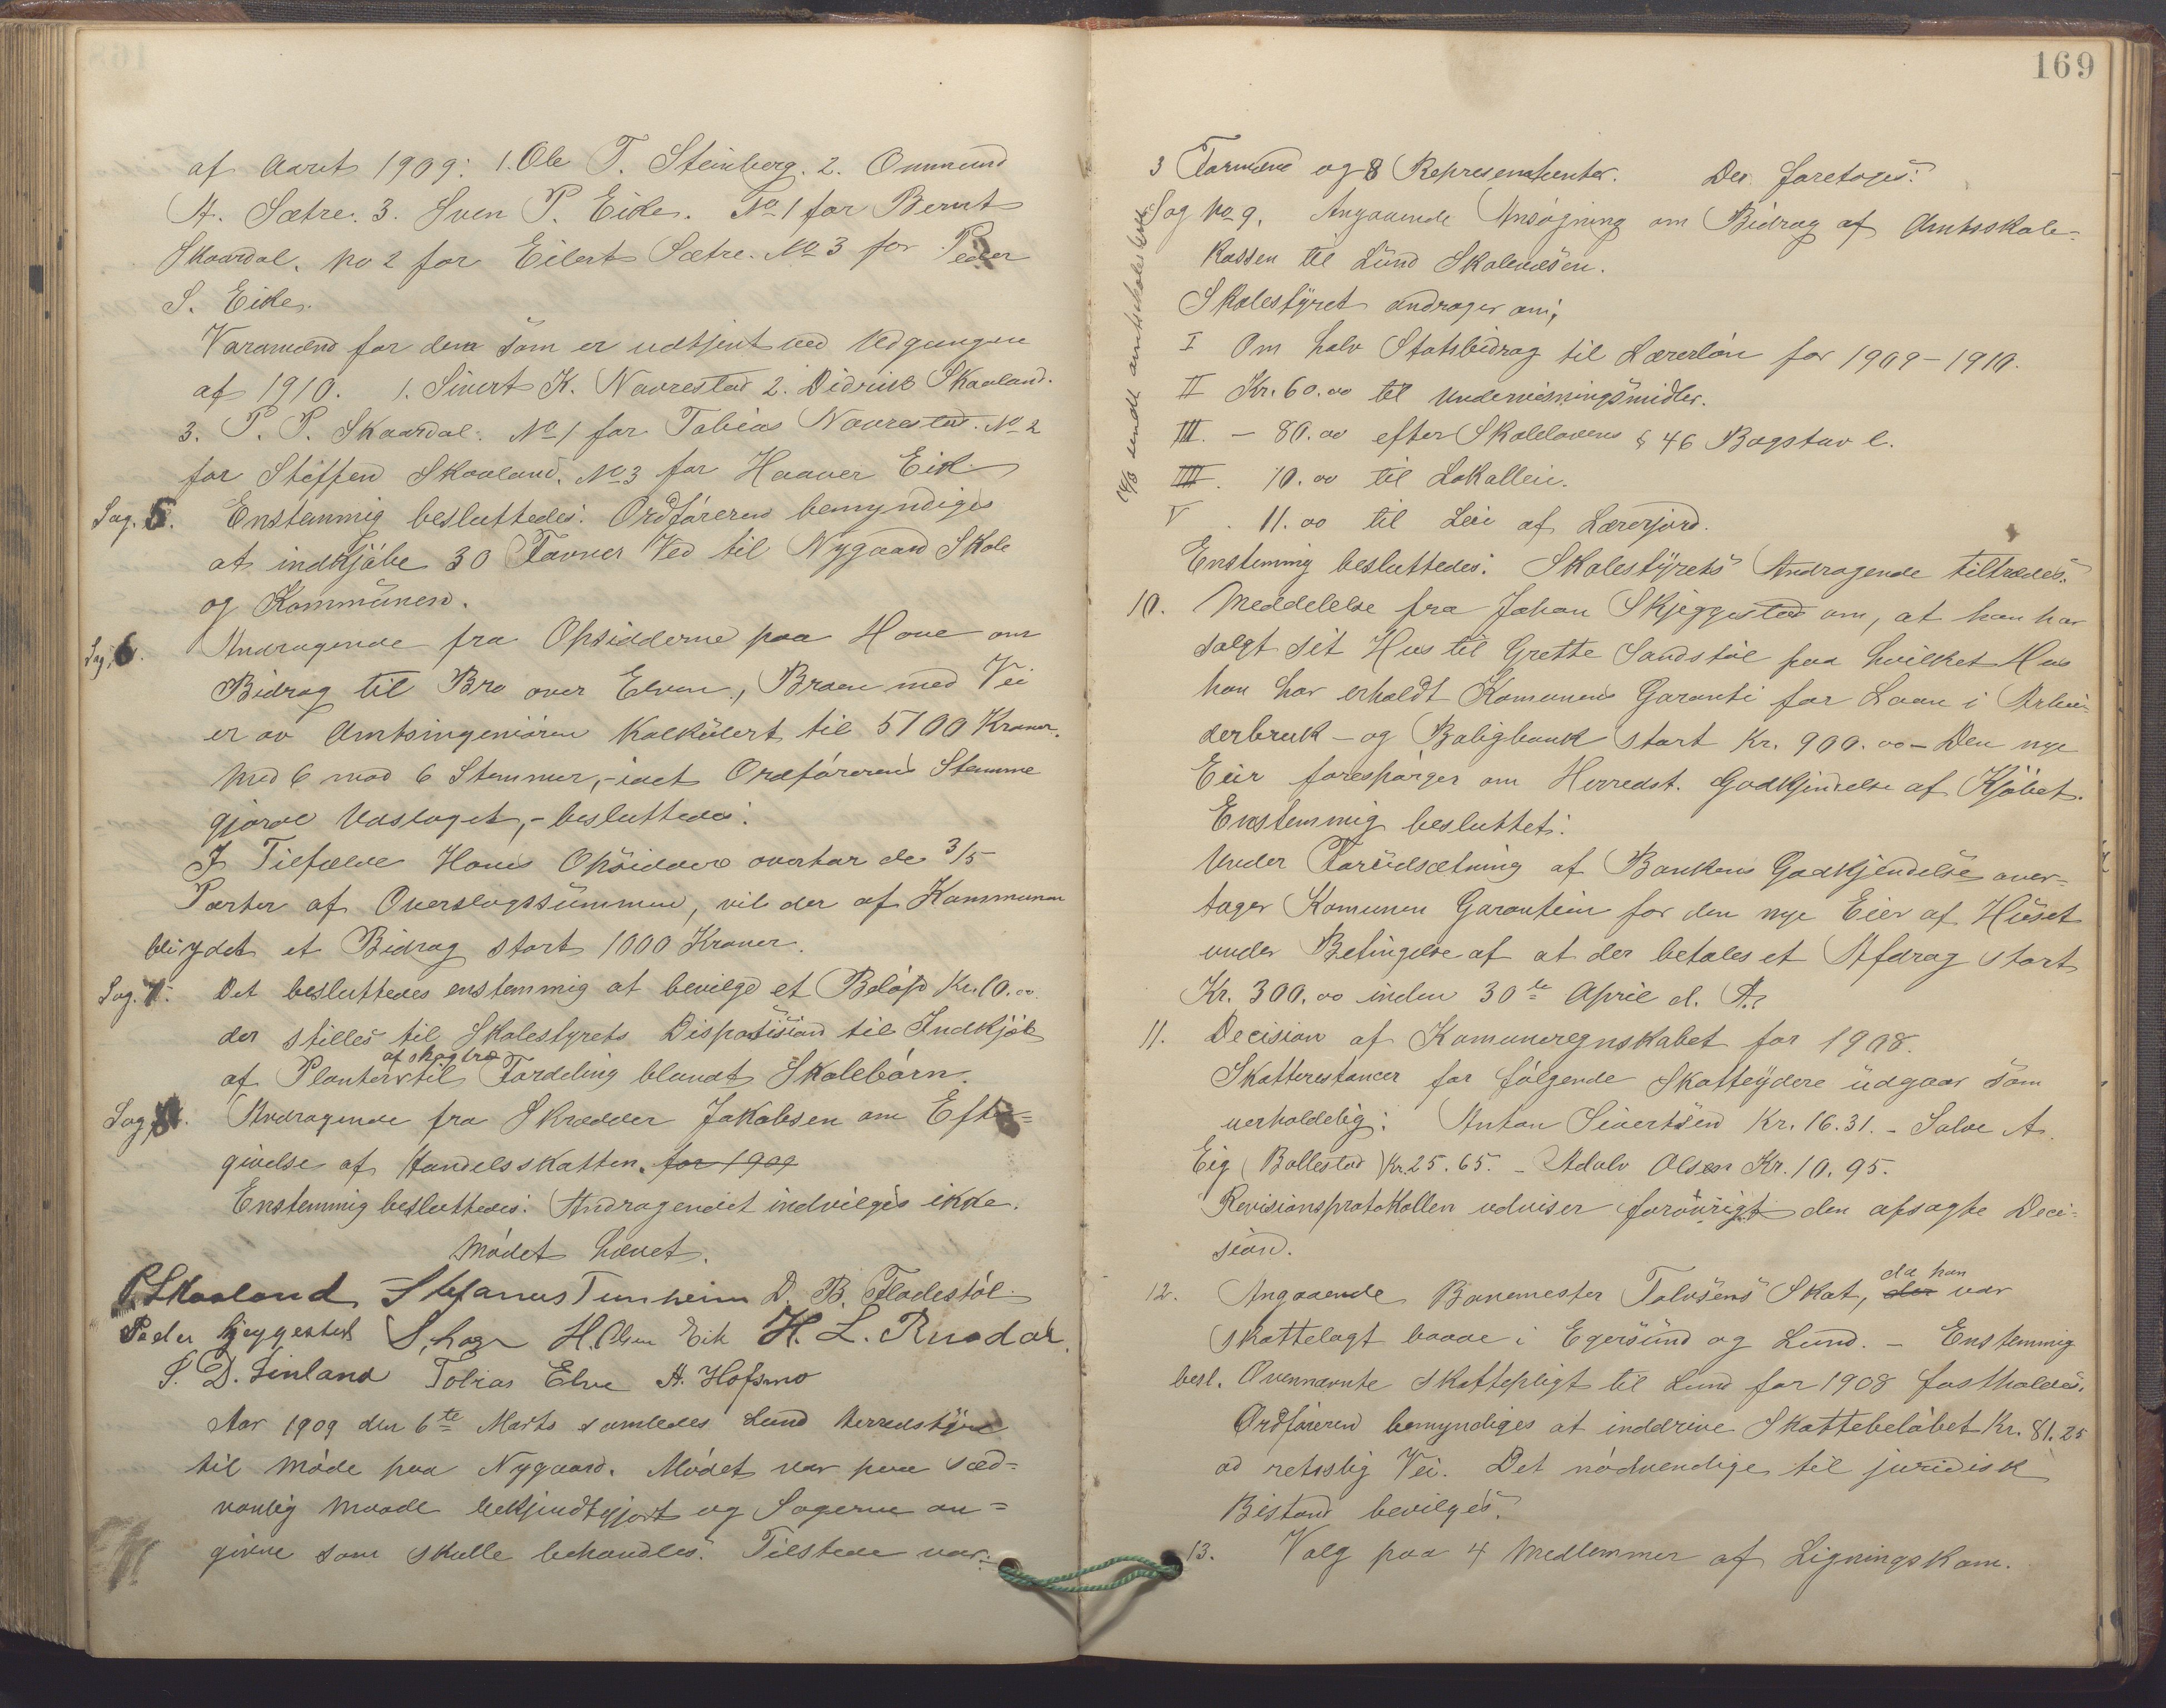 af Aaret 1909: 1. Ole T. Steinberg. 2. Ommund
A. Sætre. 3. Sven P. Eike. No 1 for Bernt
Skaardal. No 2 for Eilert Sætre. No 3 for Peder
S. Eike.
Varamænd for dem som er udtjent ved Udgangen
af 1910. 1. Sivert K. Navrestad 2. Didrik Skaaland.
3. P. P. Skaardal. No 1 for Tobias Navrestad. No 2
for Steffen Skaaland. No 3 for Haaver Eik
Sag. 5. Enstemmig besluttedes: Ordføreren bemyndiges
at indkjøbe 30 Favner Ved til Nygaard Skole
og Kommunen.
Sag. 6. Andragende fra Opsidderne paa Hove om
Bidrag til Bro over Elven, Broen med Vei
er av Amtsingeniøren Kalkulert til 5100 Kroner.
Med 6 mod 6 Stemmer, - idet Ordførerens Stemme
gjorde Udslaget, - besluttedes:
I Tilfælde Hoves Opsiddere overtar de 3/5
Parter af Overslagssummen, vil der af Kommunen
bli ydet et Bidrag stort 1000 Kroner.
Sag. 7. Det besluttedes enstemmig at bevilge et Beløp Kr. 10.00
der stilles til Skolestyrets Disposision til Indkjøb
af Planter af skogtræ til Fordeling blandt Skolebørn.
Sag. 8. Andragende fra Skrædder Jakobsen om Efter=
givelse af Handelsskatten. for 1909
Enstemmig besluttedes: Andragendet indvilges ikke.
Mødet hævet.
P. Skaaland Stefanus Tunheim D. B. Fladestøl
Peder Skjeggestad H. Olsen Eik H. L. Rusdal.
S. D. Linland Tobias Elve A. Hofsmo
Aar 1909 den 6te Marts samledes Lund Herredstyre
til Møde paa Nygaard. Mødet var paa sæd=
vanlig Maade bekjendtgjort og Sagerne an=
givne som skulle behandles. Tilstede var:
169
3 Formænd og 8 Representanter. Der foretoges:
Sag No 9. Angaaende Ansøgning om Bidrag af Amtsskole-
Kassen til Lund Skolevæsen.
Skolestyret andrager om;
I Om halv Statsbidrag til Lærerløn for 1909-1910.
II Kr. 60.00 til Undervisningsmidler.
III. - 80.00 efter Skolelovens § 46 Bogstav l.
IIII. 10.00 til Lokalleie.
V . 11.00 til Leie af Lærerjord.
Enstemmig besluttedes: Skolestyrets Andragende tiltrædes.
10. Meddelelse fra Johan Skjeggestad om, at han har
solgt sit Hus til Grette Sandstøl paa hvilket Hus
han har erholdt Komunens Garanti for Laan i Arbei-
derbruk- og Boligbank stort Kr. 900.00 - Den nye
Eier forespørger om Herredst. Godkjendelse af Kjøbet.
Enstemmig besluttet:
Under Forudsætning af Bankens Godkjendelse over-
tager Komunen Garantien for den nye Eier af Huset
under Betingelse af at der betales et Afdrag stort
Kr. 300.00 inden 30te April d. A.
11. Decision af Komuneregnskabet for 1908.
Skatterestancer for følgende Skatteydere udgaar som
uerholdelig: Anton Sivertsen Kr. 16.31. - Salve A.
Eig (Bollestad) Kr. 25.65. - Adolv Olsen Kr. 10.95.
Revisionsprotokollen udviser forøvrigt den afsagte Deci-
sion.
12. Angaaende Banemester Talvsens Skat, der da han var
skattelagt baade i Egersund og Lund. - Enstemmig
besl. Ovennævnte Skattepligt til Lund for 1908 fastholdes.
Ordføreren bemyndiges at inddrive Skattebeløbet Kr. 81.25
ad retslig Vei. Det nødvendige til juridisk
Bistand bevilges.
13. Valg paa 4 Medlemmer af Ligningskom.